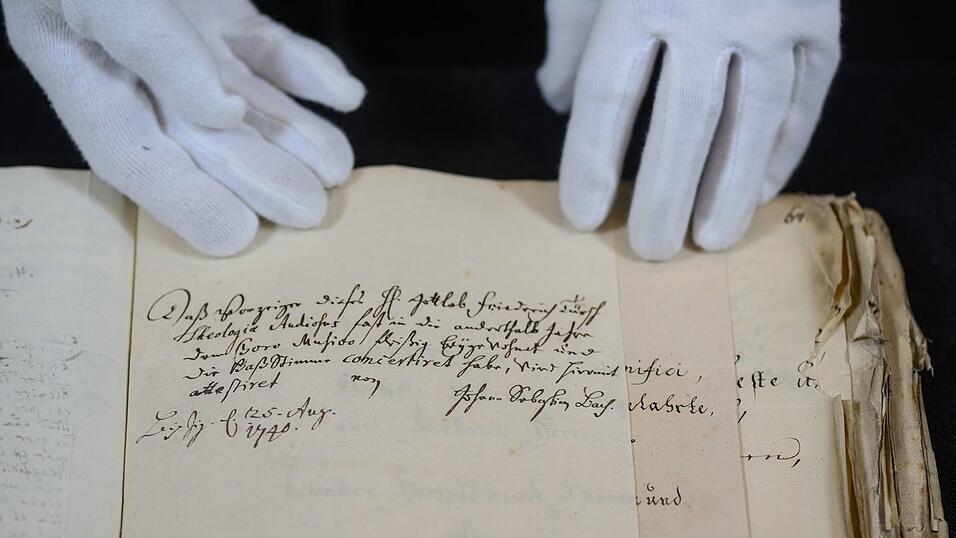 64
Daß Vorzeiger dieses H. Gottlob Friedrich Türck
Theologiæ Studiosus fast in die anderthalb Jahre
dem Choro Musico fleißig beygewohnet und
die Baß Stimme concertiret habe, wird hiermit
attestiret von
Johann Sebastian Bach.
Leipzig. d 25. Aug.
1740.
nifici,
este
und